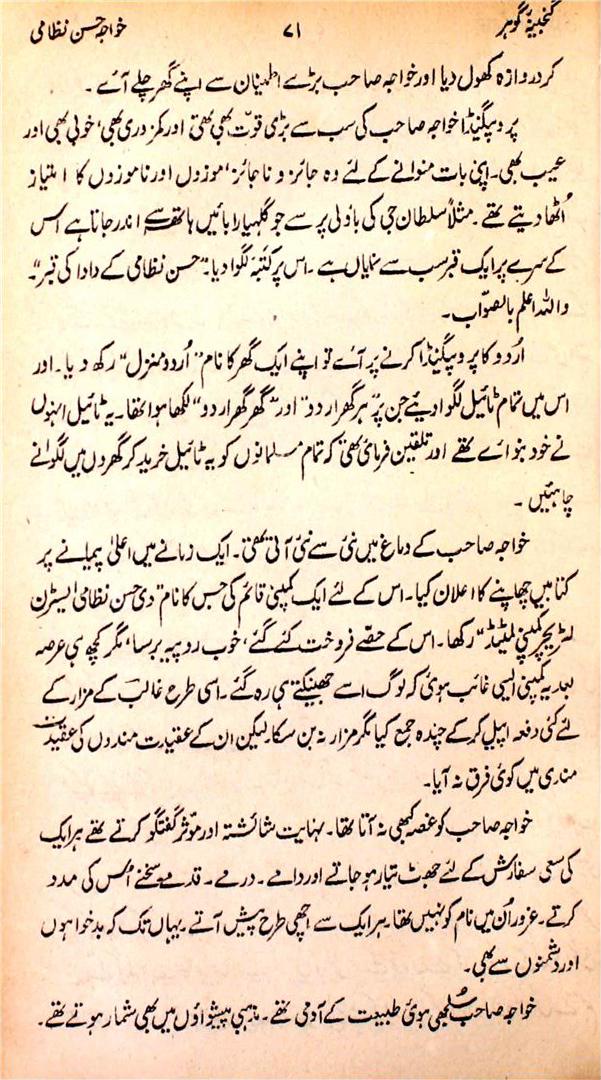 گنجینۂ گوہر ۷۱ خواجہ حسن نظامی
کر دروازہ کھول دیا اور خواجہ صاحب بڑے اطمینان سے اپنے گھر چلے آئے۔
پروپیگنڈا خواجہ صاحب کی سب سے بڑی قوت بھی تھی اور کمزوری بھی، خوبی بھی اور
عیب بھی۔ اپنی بات منوانے کے لئے وہ جائز و ناجائز، موزوں اور ناموزوں کا امتیاز
اُٹھا دیتے تھے۔ مثلاً سلطان جی کی باؤلی پر سے جو گلہیارا بائیں ہاتھ سے اندر جاتا ہے اس
کے سرے پر ایک قبر سب سے نمایاں ہے۔ اس پر کتبہ لگوا دیا۔ "حسن نظامی کے دادا کی قبر"۔
واللہ اعلم بالصواب۔
اُردو کا پروپیگنڈا کرنے پر آئے تو اپنے ایک گھر کا نام "اُردو منزل" رکھ دیا۔ اور
اس میں تمام ٹائیل لگوا دیئے جن پر "ہر گھر اردو" اور "گھر گھر اردو" لکھا ہوا تھا۔ یہ ٹائیل انہوں
نے خود بنوائے تھے اور تلقین فرمائی تھی کہ تمام مسلمانوں کو یہ ٹائیل خرید کر گھروں میں لگوانے
چاہئیں۔
خواجہ صاحب کے دماغ میں نئی سے نئی آتی تھی۔ ایک زمانے میں اعلیٰ پیمانے پر
کتابیں چھاپنے کا اعلان کیا۔ اس کے لئے ایک کمپنی قائم کی جس کا نام "دی حسن نظامی ایسٹرن
لٹریچر کمپنی لمٹیڈ" رکھا۔ اس کے حصے فروخت کئے گئے، خوب روپیہ برسا، مگر کچھ ہی عرصہ
بعد یہ کمپنی ایسی غائب ہوئی کہ لوگ اسے جھینکتے ہی رہ گئے۔ اسی طرح غالبؔ کے مزار کے
لئے کئی دفعہ اپیل کر کے چندہ جمع کیا مگر مزار نہ بن سکا۔ لیکن ان کے عقیدت مندوں کی عقیدت
مندی میں کوئی فرق نہ آیا۔
خواجہ صاحب کو غصہ کبھی نہ آتا تھا۔ نہایت شائستہ اور مؤثر گفتگو کرتے تھے ہر ایک
کی سعی سفارش کے لئے جھٹ تیار ہو جاتے اور دامے۔ درمے۔ قدمے سخنے اُس کی مدد
کرتے۔ غرور اُن میں نام کو نہیں تھا۔ ہر ایک سے اچھی طرح پیش آتے۔ یہاں تک کہ بدخواہوں
اور دشمنوں سے بھی۔
خواجہ صاحب سُلجھی ہوئی طبیعت کے آدمی تھے۔ مذہبی پیشواؤں میں بھی شمار ہوتے تھے۔